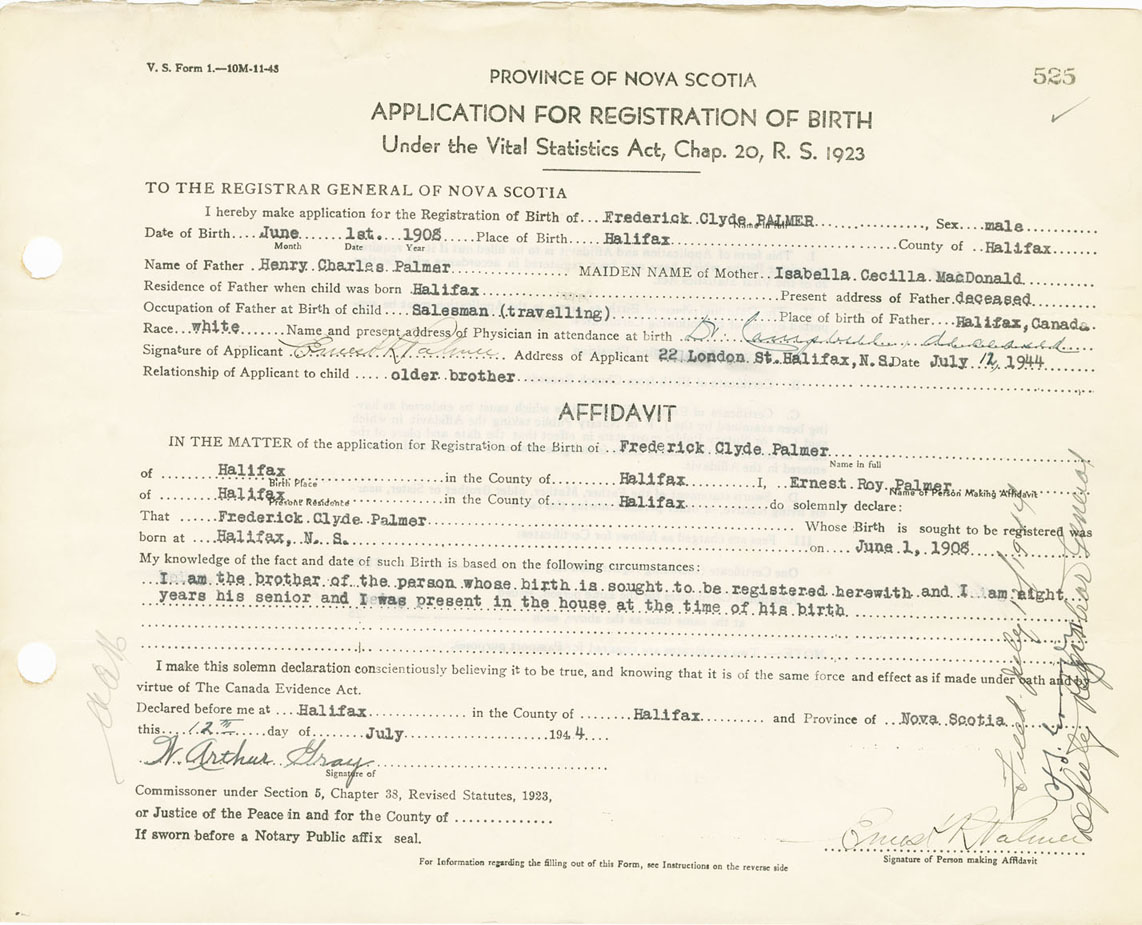 V. S. Form 1.—10M-11-43
525
PROVINCE OF NOVA SCOTIA
APPLICATION FOR REGISTRATION OF BIRTH
Under the Vital Statistics Act, Chap. 20, R. S. 1923
TO THE REGISTRAR GENERAL OF NOVA SCOTIA
I hereby make application for the Registration of Birth of Frederick Clyde PALMER, Sex male
Name in full
Date of Birth June 1st. 1908 Place of Birth Halifax County of Halifax
Month Date Year
Name of Father Henry Charles Palmer MAIDEN NAME of Mother Isabella Cecilla MacDonald
Residence of Father when child was born Halifax Present address of Father deceased
Occupation of Father at Birth of child Salesman (travelling) Place of birth of Father Halifax, Canada.
Race white Name and present address of Physician in attendance at birth Dr. Campbell deceased
Signature of Applicant Ernest R Palmer Address of Applicant 22 London St. Halifax, N.S. Date July 12, 1944
Relationship of Applicant to child older brother
AFFIDAVIT
IN THE MATTER of the application for Registration of the Birth of Frederick Clyde Palmer
Name in full
of Halifax in the County of Halifax I, Ernest Roy Palmer
Birth Place Name of Person Making Affidavit
of Halifax in the County of Halifax do solemnly declare:
Present Residence
That Frederick Clyde Palmer Whose Birth is sought to be registered was
born at Halifax, N. S. on June 1, 1908
My knowledge of the fact and date of such Birth is based on the following circumstances:
I am the brother of the person whose birth is sought to be registered herewith and I am eight
years his senior and I was present in the house at the time of his birth
I make this solemn declaration conscientiously believing it to be true, and knowing that it is of the same force and effect as if made under oath and by
virtue of The Canada Evidence Act.
Declared before me at Halifax in the County of Halifax and Province of Nova Scotia
this 12th day of July 1944
W. Arthur Gray
Signature of
Commissioner under Section 5, Chapter 38, Revised Statutes, 1923,
or Justice of the Peace in and for the County of
If sworn before a Notary Public affix seal.
Ernest R Palmer
Signature of Person making Affidavit
For Information regarding the filling out of this Form, see Instructions on the reverse side
Filed July 1944
Deputy Registrar General